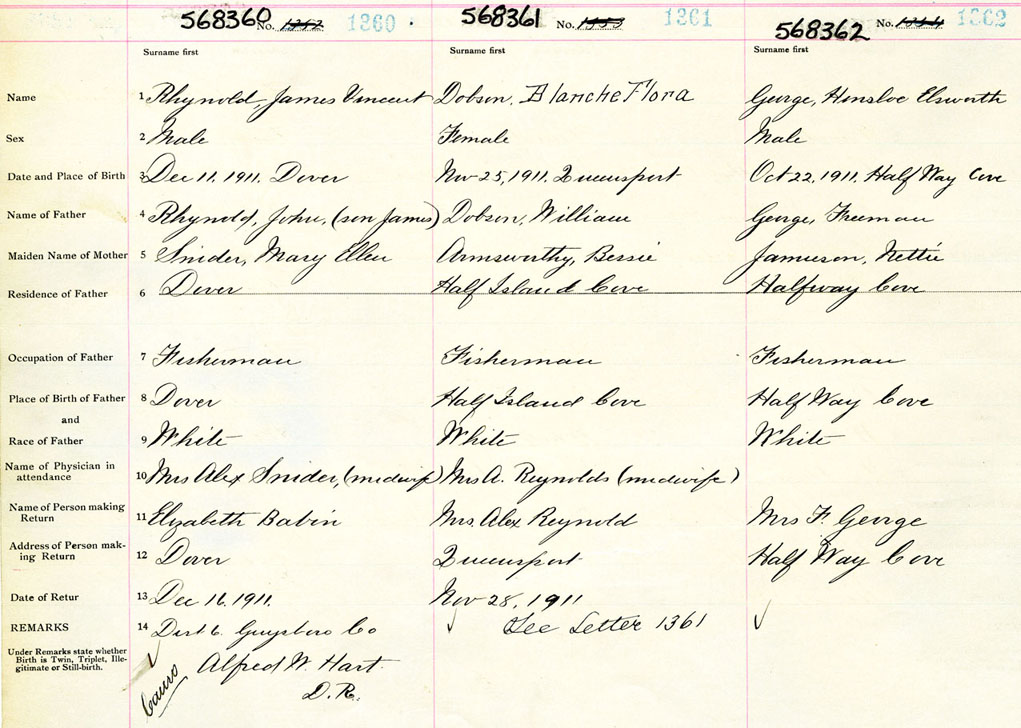 568360 No. 1360 568361 No. 1361 568362 No. 1362
Surname first Surname first Surname first
Name 1 Rhynold, James Vincent Dobson, Blanche Flora George, Hensloe Elsworth
Sex 2 Male Female Male
Date and Place of Birth 3 Dec 11, 1911. Dover Nov 25, 1911. Queensport Oct 22, 1911. Half Way Cove
Name of Father 4 Rhynold, John, (son James) Dobson, William George, Freeman
Maiden Name of Mother 5 Snider, Mary Ellen Armsworthy, Bessie Jamieson, Nettie
Residence of Father 6 Dover Half Island Cove Halfway Cove
Occupation of Father 7 Fisherman Fisherman Fisherman
Place of Birth of Father 8 Dover Half Island Cove Half Way Cove
and
Race of Father 9 White White White
Name of Physician in
attendance 10 Mrs Alex Snider, (midwife) Mrs A. Reynolds (midwife)
Name of Person making
Return 11 Elizabeth Babin Mrs. Alex Reynold Mrs F. George
Address of Person mak-
ing Return 12 Dover Queensport Half Way Cove
Date of Retur 13 Dec 16, 1911. Nov 28, 1911
REMARKS 14 Dist 6. Guysboro Co See Letter 1361
Under Remarks state whether
Birth is Twin, Triplet, Ille-
gitimate or Still-birth.
Alfred W. Hart.
D. R.
Canso